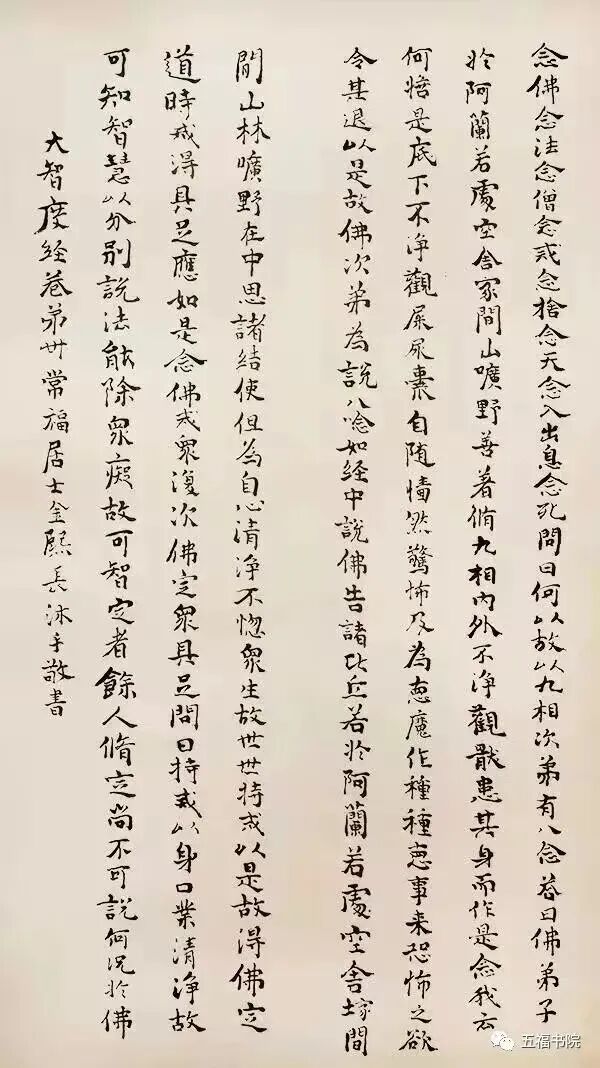 念佛念法念僧念戒念捨念天念入出息念死問曰何以故以九相次弟有八念荅曰佛弟子
於阿蘭若處空舍冢間山曠野善著脩九相內外不淨觀猒患其身而作是念我云
何擔是底下不淨觀屎尿囊自随懎然驚怖及為惡魔作種種惡事来恐怖之欲
令其退以是故佛次弟為說八唸如经中說佛告諸比丘若於阿蘭若處空舍塚間
間山林曠野在中思諸结使但為自心清淨不惚眾生故世世持戒以是故得佛定
道時戒得具足應如是念佛戒眾復次佛定眾具足問曰持戒以身口業清淨故
可知智慧以分別說法能除眾癡故可智定者餘人脩定尚不可說何況於佛
大智度经卷弟卅常福居士金熙長沐手敬書
五福书院